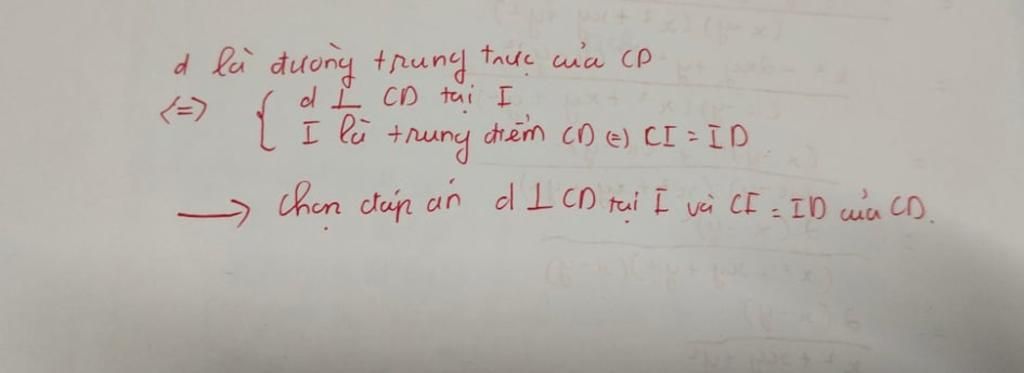 d là đường trung trực của CD
<=> { d ⊥ CD tại I
I là trung điểm CD (=) CI = ID
→ Chọn đáp án d ⊥ CD tại I và CI = ID của CD.